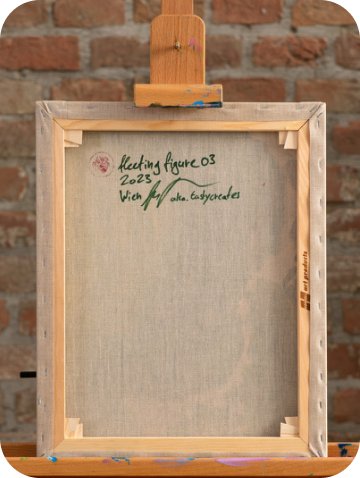 fleeting figure 03
2023
Wien aka. tastycreates
art products